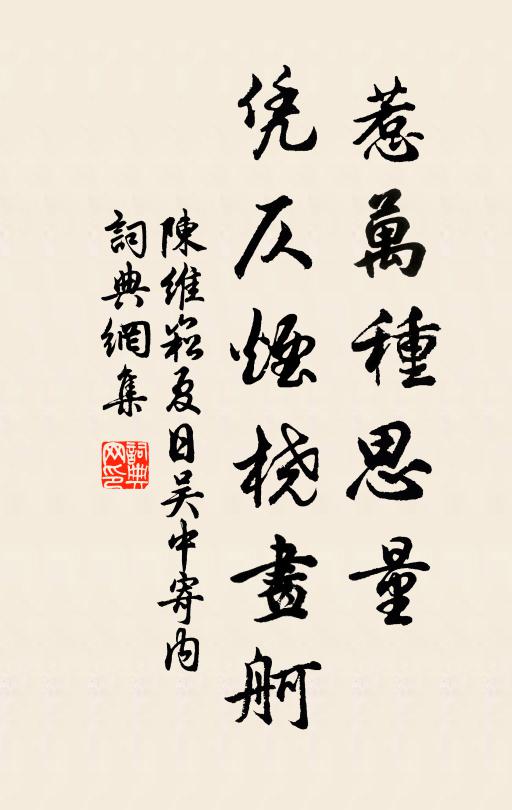 惹萬種思量
凭仄煙桡畫舸
陳維崧夏日吴中寄内
詞典網集
詞典网印